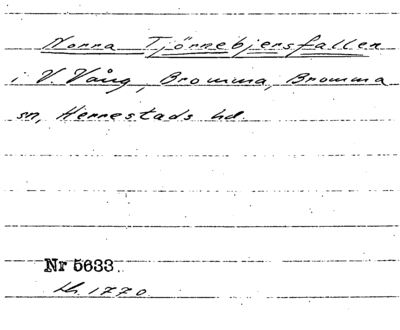 Norra Tjörnebjersfallen
i V. Vång, Bromma, Bromma
sn, Herrestads hd.
Nr 5633.
Lh. 1770.